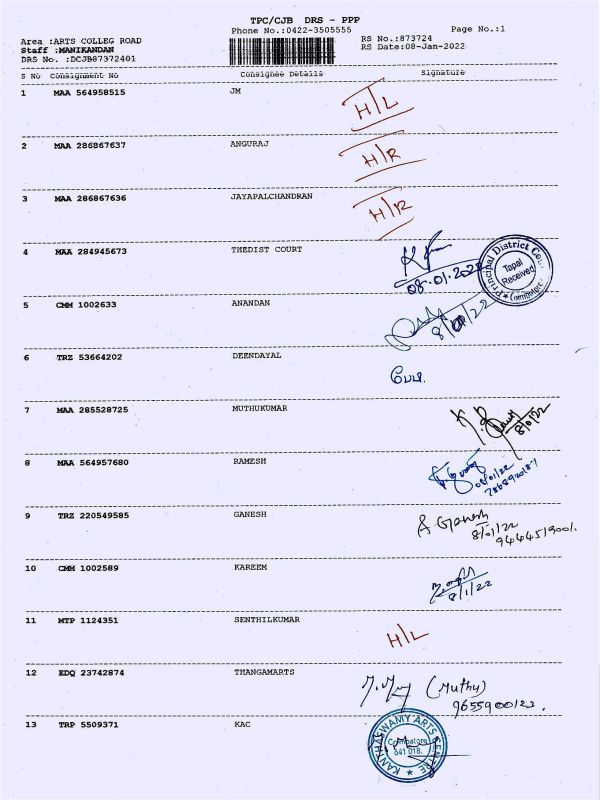 TPC/CJB DRS - PPP
Phone No.:0422-3505555
Page No.:1
Area :ARTS COLLEG ROAD
RS No.:873724
Staff :MANIKANDAN
RS Date:08-Jan-2022
DRS No. :DCJB87372401
S No Consignment No Consignee Details Signature
1 MAA 564958515 JM H/L
2 MAA 286867637 ANGURAJ H/R
3 MAA 286867636 JAYAPALCHANDRAN H/R
4 MAA 284945673 THEDIST COURT
08.01.2022
Principal District Cou
Tapal
Received
Coimbatore
5 CMM 1002633 ANANDAN
6 TRZ 53664202 DEENDAYAL
7 MAA 285528725 MUTHUKUMAR
8/01/22
8 MAA 564957680 RAMESH
08/01/22
9 TRZ 220549585 GANESH A Ganesh
8/01/22
10 CMM 1002589 KAREEM
8/1/22
11 MTP 1124351 SENTHILKUMAR H/L
12 EDQ 23742874 THANGAMARTS (Muthy)
9655900123.
13 TRP 5509371 KAC
KANTHASWAMY ARTS CENTRE
Coimbatore
641 018.